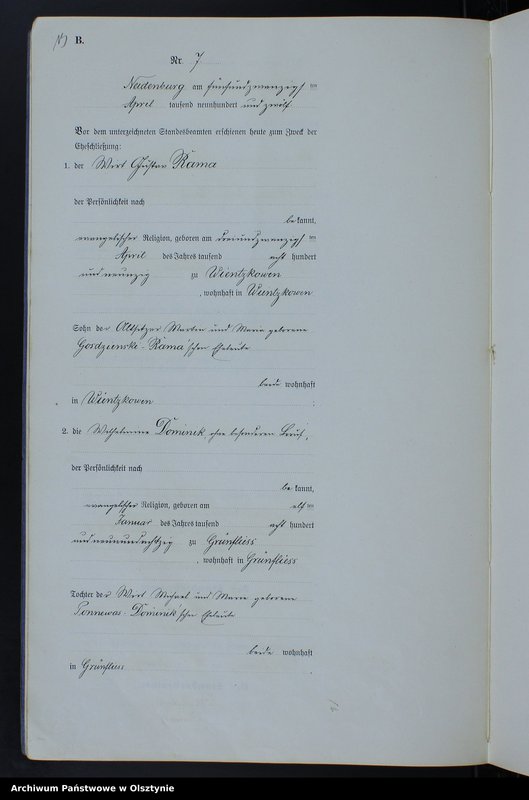 B.
Nr. 7
Neidenburg am fünfundzwanzigsten
April tausend neunhundert und zwölf
Vor dem unterzeichneten Standesbeamten erschienen heute zum Zweck der
Eheschließung:
1. der Wirt Gustav Rama
der Persönlichkeit nach
bekannt,
evangelischer Religion, geboren am dreiundzwanzigsten
April des Jahres tausend acht hundert
und neunzig zu Wientzkowen
, wohnhaft in Wientzkowen
Sohn der Altsitzer Martin und Maria geborene
Gosdzienski - Rama'schen Eheleute
beide wohnhaft
in Wientzkowen
2. die Wilhelmine Dominik ohne besonderen Beruf,
der Persönlichkeit nach
bekannt,
evangelischer Religion, geboren am elften
Januar des Jahres tausend acht hundert
und neunundachtzig zu Grünfliess
, wohnhaft in Grünfliess
Tochter der Wirt Michael und Marie geborene
Ponnewas - Dominik'schen Eheleute
beide wohnhaft
in Grünfliess
Archiwum Państwowe w Olsztynie